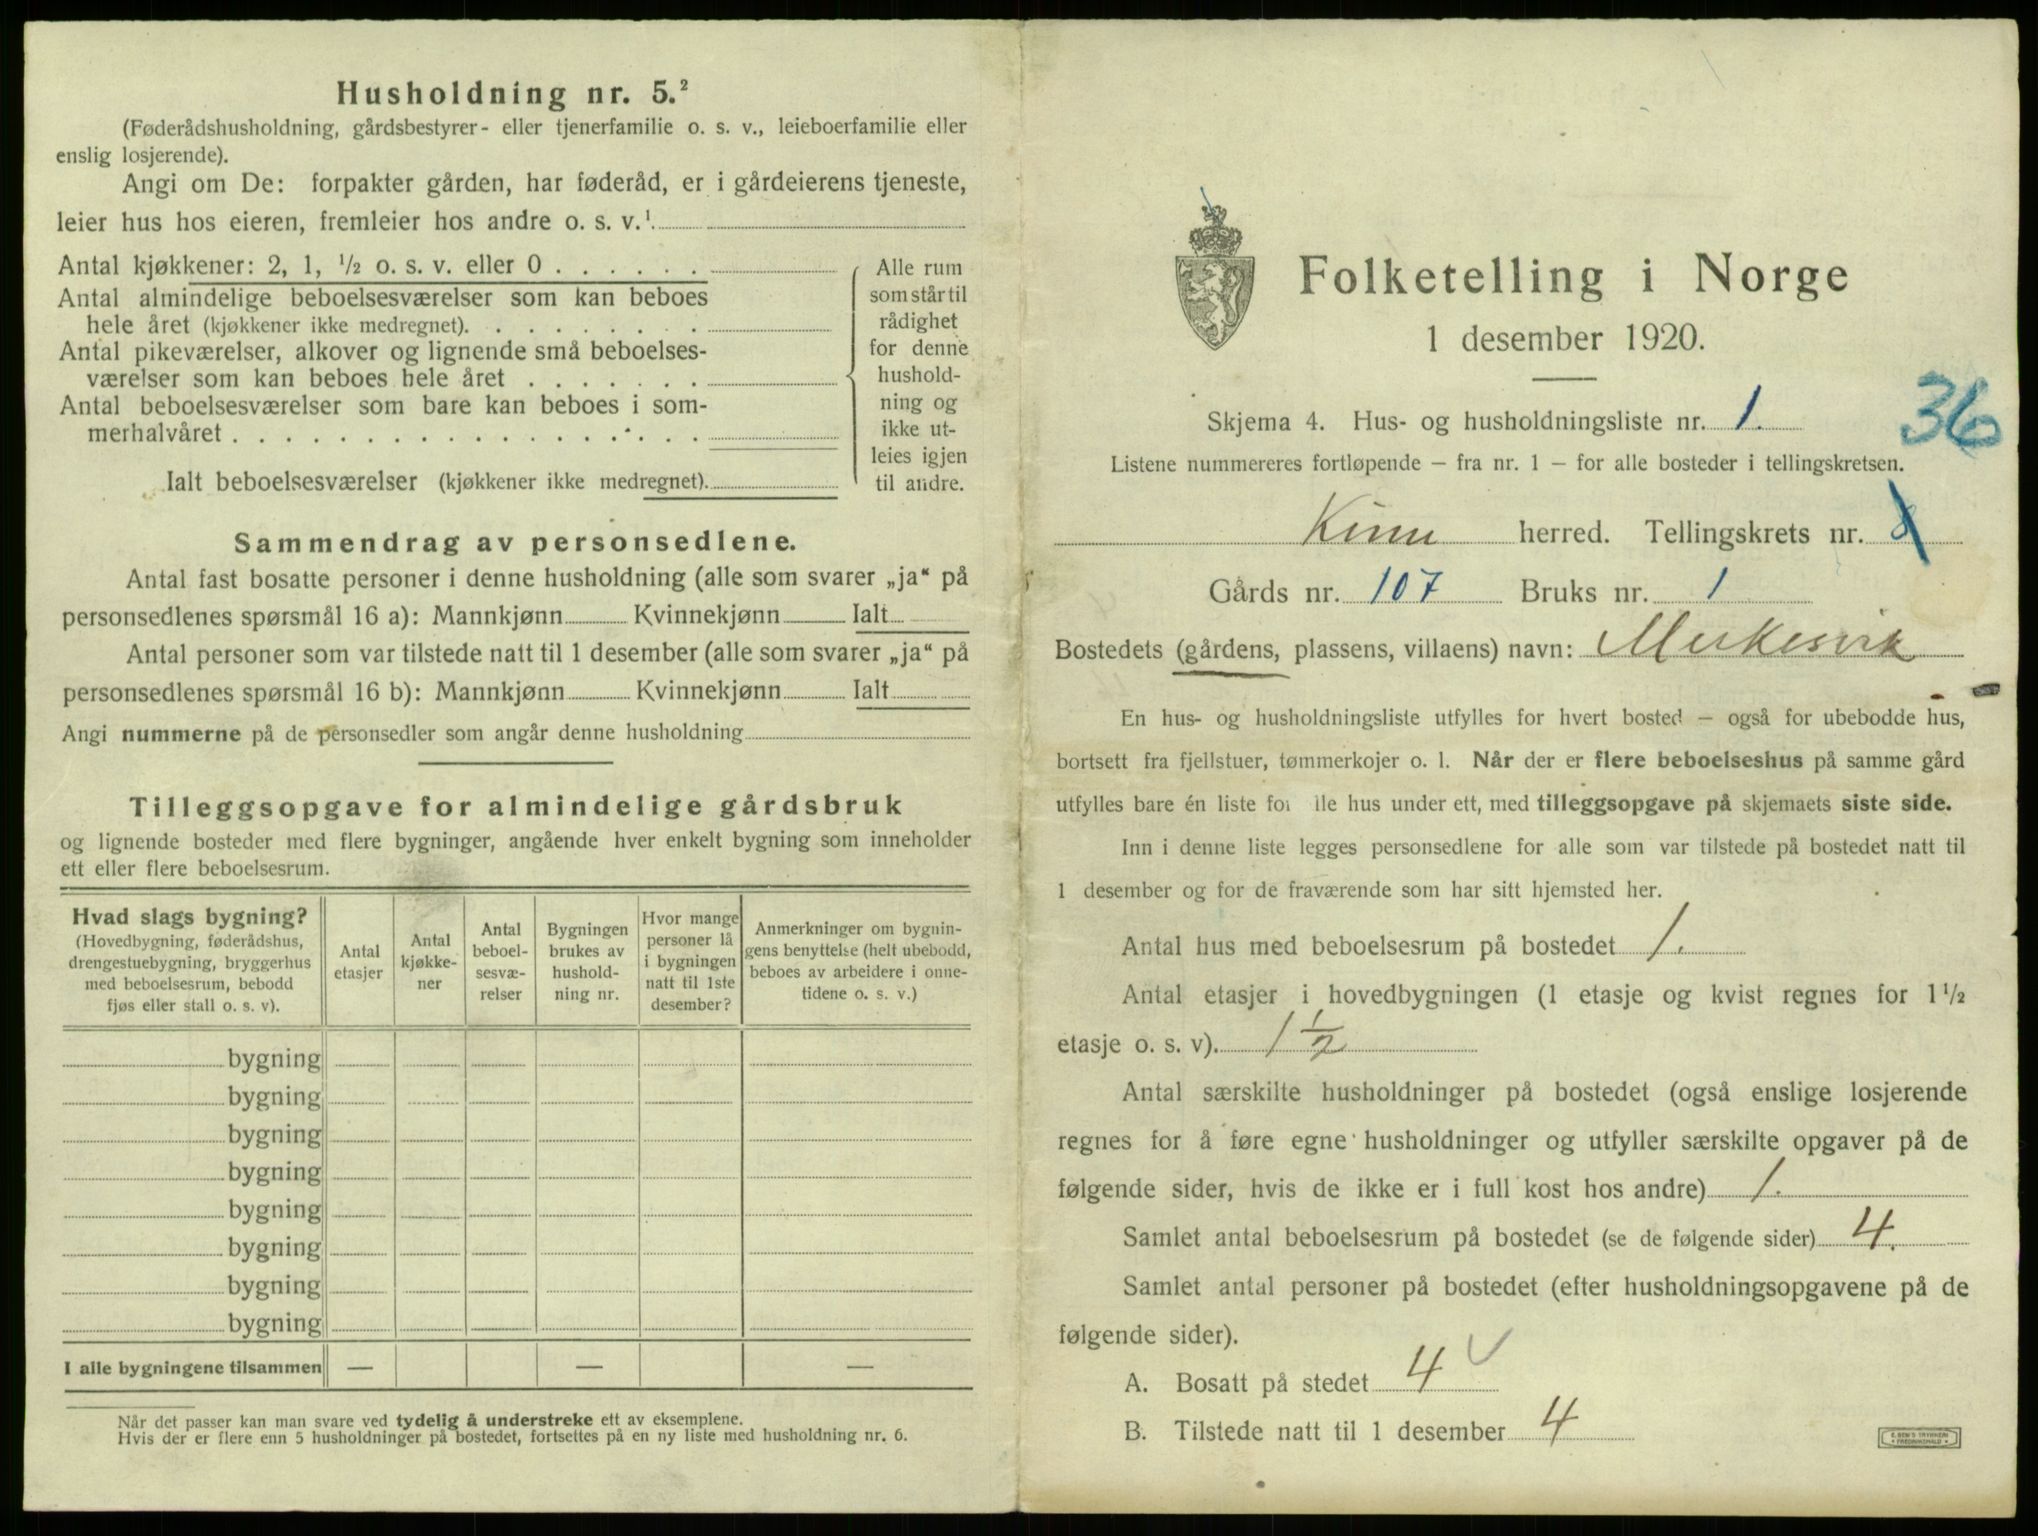 Husholdning nr. 5.²
(Føderådshusholdning, gårdsbestyrer- eller tjenerfamilie o. s. v., leieboerfamilie eller
enslig losjerende).
Angi om De: forpakter gården, har føderåd, er i gårdeierens tjeneste,
leier hus hos eieren, fremleier hos andre o. s. v.¹
Antal kjøkkener: 2, 1, ½ o. s. v. eller 0 . . . . . .
Antal almindelige beboelsesværelser som kan beboes
hele året (kjøkkener ikke medregnet). . . . . . . . .
Antal pikeværelser, alkover og lignende små beboelses-
værelser som kan beboes hele året . . . . . . .
Antal beboelsesværelser som bare kan beboes i som-
merhalvåret . . . . . . . . . . . . . . . . . .
Ialt beboelsesværelser (kjøkkener ikke medregnet).
Alle rum
som står til
rådighet
for denne
hushold-
ning og
ikke ut-
leies igjen
til andre.
Sammendrag av personsedlene.
Antal fast bosatte personer i denne husholdning (alle som svarer „ja“ på
personsedlenes spørsmål 16 a): Mannkjønn Kvinnekjønn Ialt
Antal personer som var tilstede natt til 1 desember (alle som svarer „ja“ på
personsedlenes spørsmål 16 b): Mannkjønn Kvinnekjønn Ialt
Angi nummerne på de personsedler som angår denne husholdning
Tilleggsopgave for almindelige gårdsbruk
og lignende bosteder med flere bygninger, angående hver enkelt bygning som inneholder
ett eller flere beboelsesrum.
Hvad slags bygning?
(Hovedbygning, føderådshus,
drengestuebygning, bryggerhus
med beboelsesrum, bebodd
fjøs eller stall o. s. v).
Antal
etasjer
Antal
kjøkke-
ner
Antal
beboel-
sesvæ-
relser
Bygningen
brukes av
hushold-
ning nr.
Hvor mange
personer lå
i bygningen
natt til 1ste
desember?
Anmerkninger om bygnin-
gens benyttelse (helt ubebodd,
beboes av arbeidere i onne-
tidene o. s. v.)
bygning
bygning
bygning
bygning
bygning
bygning
bygning
bygning
I alle bygningene tilsammen — — —
Når det passer kan man svare ved tydelig å understreke ett av eksemplene.
Hvis der er flere enn 5 husholdninger på bostedet, fortsettes på en ny liste med husholdning nr. 6.
Folketelling i Norge
1 desember 1920.
Skjema 4. Hus- og husholdningsliste nr. 1.
36
Listene nummereres fortløpende – fra nr. 1 – for alle bosteder i tellingskretsen.
Kinn herred. Tellingskrets nr. 8
Gårds nr. 107 Bruks nr. 1
Bostedets (gårdens, plassens, villaens) navn: Merkesvik
En hus- og husholdningsliste utfylles for hvert bosted – også for ubebodde hus,
bortsett fra fjellstuer, tømmerkojer o. l. Når der er flere beboelseshus på samme gård
utfylles bare én liste for lle hus under ett, med tilleggsopgave på skjemaets siste side.
Inn i denne liste legges personsedlene for alle som var tilstede på bostedet natt til
1 desember og for de fraværende som har sitt hjemsted her.
Antal hus med beboelsesrum på bostedet 1.
Antal etasjer i hovedbygningen (1 etasje og kvist regnes for 1½
etasje o. s. v). 1 ½
Antal særskilte husholdninger på bostedet (også enslige losjerende
regnes for å føre egne husholdninger og utfyller særskilte opgaver på de
følgende sider, hvis de ikke er i full kost hos andre) 1.
Samlet antal beboelsesrum på bostedet (se de følgende sider) 4.
Samlet antal personer på bostedet (efter husholdningsopgavene på de
følgende sider).
A. Bosatt på stedet 4
B. Tilstede natt til 1 desember 4